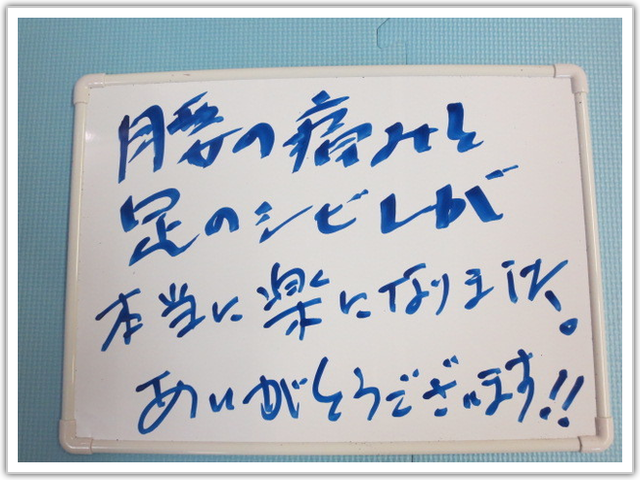 腰の痛みと
足のシビレが
本当に楽になりました。
ありがとうございます!!